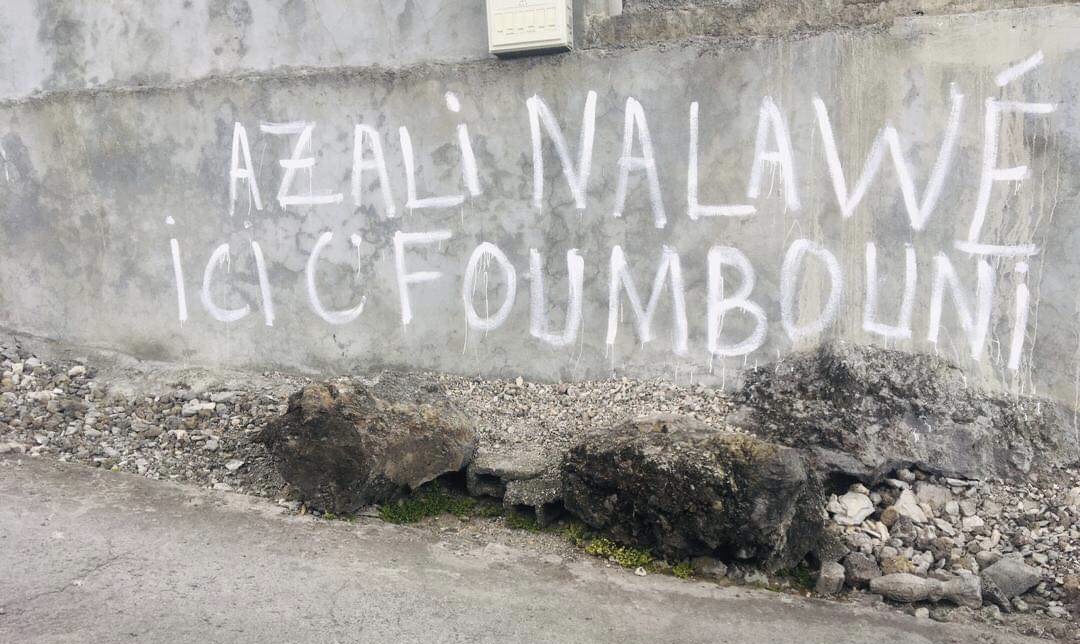 AZALi NALAWÉ
iCi C' FOUMBOUNi